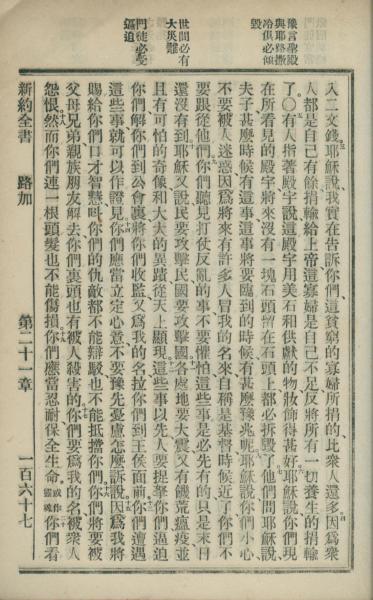 豫言聖殿
與耶路撒
冷俱必傾
毀
世間必有
大災難
門徒必受
逼迫
入二文錢耶穌說我實在告訴你們這貧窮的寡婦所捐的比衆人還多因爲衆
人都是自己有餘捐輸給上帝這寡婦是自己不足反將所有一切養生的捐輸
了○有人指著殿宇說這殿宇用美石和供獻的物妝飾得甚好耶穌說你們現
在所看見的殿宇將來沒有一塊石頭留在石頭上都必拆毀了他們問耶穌說
夫子甚麽時候有這事這事將要臨到的時候有甚麽豫兆呢耶穌說你們小心
不要被人迷惑因爲將來有許多人冒我的名來自稱是基督時候近了你們不
要跟從他們你們聽見打仗反亂的事不要懼怕這些事是必先有的只是末日
還沒有到耶穌又說民要攻擊民國要攻擊國各處地要大震又有饑荒瘟疫並
且有可怕的奇像和大大的異蹟從天上顯現這些事以先人要捉拏你們逼迫
你們解你們到公會裏將你們收監又爲我的名拉你們到王侯面前你們遭遇
這些事就可以作證見你們應當立定心意不要豫先憂慮怎麽訴說因爲我將
賜給你們口才智慧叫你們的仇敵都不能辯駁也不能抵擋你們你們將要被
父母兄弟親族朋友解去你們裏頭也有被人殺害的你們要爲我的名被衆人
怨恨然而你們連一根頭髮也不能傷損你們應當忍耐保全生命或作靈魂你們看
新約全書　路加　第二十一章　一百六十七